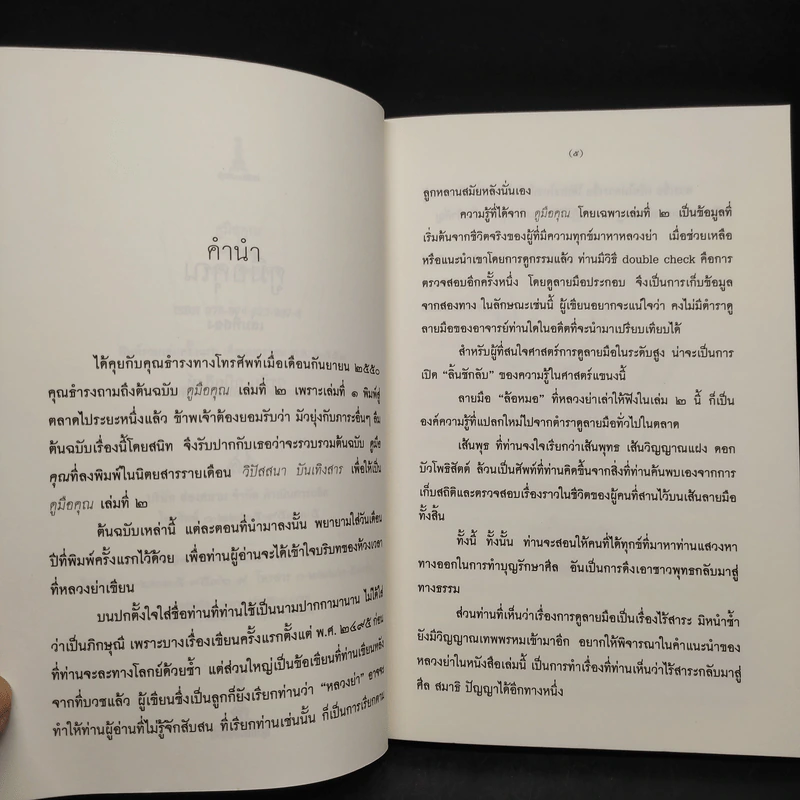 คำนำ
ได้คุยกับคุณธำรงทางโทรศัพท์เมื่อเดือนกันยายน ๒๕๕๐
คุณธำรงถามถึงต้นฉบับ ดูมือคุณ เล่มที่ ๒ เพราะเล่มที่ ๑ พิมพ์สู่
ตลาดไประยะหนึ่งแล้ว ข้าพเจ้าต้องยอมรับว่า มัวยุ่งกับภาระอื่นๆ ลืม
ต้นฉบับเรื่องนี้โดยสนิท จึงรับปากกับเธอว่าจะรวบรวมต้นฉบับ ดูมือ
คุณที่ลงพิมพ์ในนิตยสารรายเดือน วิปัสสนา บันเทิงสาร เพื่อให้เป็น
ดูมือคุณ เล่มที่ ๒
ต้นฉบับเหล่านี้ แต่ละตอนที่นำมาลงนั้น พยายามใส่วันเดือน
ปีที่พิมพ์ครั้งแรกไว้ด้วย เพื่อท่านผู้อ่านจะได้เข้าใจบริบทของห้วงเวลา
ที่หลวงย่าเขียน
บนปกตั้งใจใส่ชื่อท่านที่ท่านใช้เป็นนามปากกามานาน ไม่ได้ใส่
ว่าเป็นภิกษุณี เพราะบางเรื่องเขียนครั้งแรกตั้งแต่ พ.ศ. ๒๔๙๕ ก่อน
ที่ท่านจะละทางโลกย์ด้วยซ้ำ แต่ส่วนใหญ่เป็นข้อเขียนที่ท่านเขียนหลัง
จากที่บวชแล้ว ผู้เขียนซึ่งเป็นลูกก็ยังเรียกท่านว่า “หลวงย่า” อาจจะ
ทำให้ท่านผู้อ่านที่ไม่รู้จักสับสน ที่เรียกท่านเช่นนั้น ก็เป็นการเรียกตาม
(๕)
ลูกหลานสมัยหลังนั่นเอง
ความรู้ที่ได้จาก ดูมือคุณ โดยเฉพาะเล่มที่ ๒ เป็นข้อมูลที่
เริ่มต้นจากชีวิตจริงของผู้ที่มีความทุกข์มาหาหลวงย่า เมื่อช่วยเหลือ
หรือแนะนำเขาโดยการดูกรรมแล้ว ท่านมีวิธี double check คือการ
ตรวจสอบอีกครั้งหนึ่ง โดยดูลายมือประกอบ จึงเป็นการเก็บข้อมูล
จากสองทาง ในลักษณะเช่นนี้ ผู้เขียนอยากจะแน่ใจว่า คงไม่มีตำราดู
ลายมือของอาจารย์ท่านใดในอดีตที่จะนำมาเปรียบเทียบได้
สำหรับผู้ที่สนใจศาสตร์การดูลายมือในระดับสูง น่าจะเป็นการ
เปิด “ลิ้นชักลับ” ของความรู้ในศาสตร์แขนงนี้
ลายมือ “ล้อหมอ” ที่หลวงย่าเล่าให้ฟังในเล่ม ๒ นี้ ก็เป็น
องค์ความรู้ที่แปลกใหม่ไปจากตำราดูลายมือทั่วไปในตลาด
เส้นพุธ ที่ท่านจงใจเรียกว่าเส้นพุทธ เส้นวิญญาณแฝง ดอก
บัวโพธิสัตต์ ล้วนเป็นศัพท์ที่ท่านคิดขึ้นจากสิ่งที่ท่านค้นพบเองจากการ
เก็บสถิติและตรวจสอบเรื่องราวในชีวิตของผู้คนที่สานไว้บนเส้นลายมือ
ทั้งสิ้น
ทั้งนี้ ทั้งนั้น ท่านจะสอนให้คนที่ได้ทุกข์ที่มาหาท่านแสวงหา
ทางออกในการทำบุญรักษาศีล อันเป็นการดึงเอาชาวพุทธกลับมาสู่
ทางธรรม
ส่วนท่านที่เห็นว่าเรื่องการดูลายมือเป็นเรื่องไร้สาระ มิหนำซ้ำ
ยังมีวิญญาณเทพพรหมเข้ามาอีก อยากให้พิจารณาในคำแนะนำของ
หลวงย่าในหนังสือเล่มนี้ เป็นการทำเรื่องที่ท่านเห็นว่าไร้สาระกลับมาสู่
ศีล สมาธิ ปัญญาได้อีกทางหนึ่ง